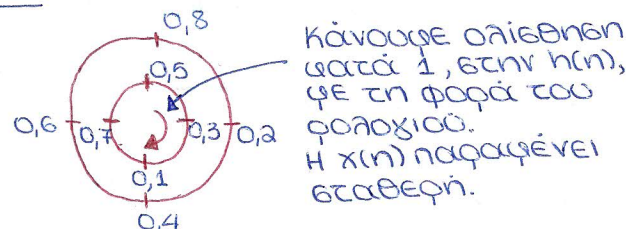 0,8
0,5
0,6
0,7
0,3
0,2
0,1
0,4
Κάνουμε ολίσθηση
κατά 1, στην h(n),
με τη φορά του
ρολογιού.
Η x(n) παραμένει
σταθερή.